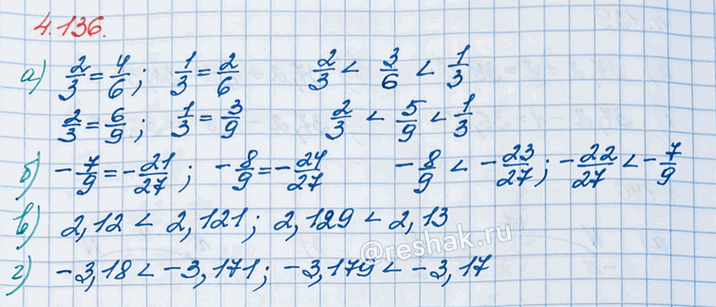 4.136.
а) 2/3 = 4/6; 1/3 = 2/6 2/3 < 3/6 < 1/3
2/3 = 6/9; 1/3 = 3/9 2/3 < 5/9 < 1/3
б) -7/9 = -21/27; -8/9 = -24/27 -8/9 < -23/27; -22/27 < -7/9
в) 2,12 < 2,121; 2,129 < 2,13
г) -3,18 < -3,171; -3,179 < -3,17
@reshak.ru